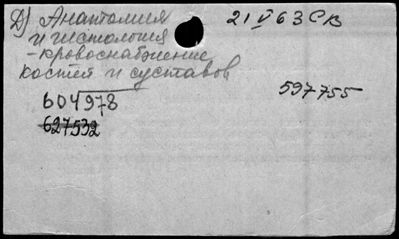 Д) Анатомия 21 V 63 СВ
и гистология
-кровоснабжение
костей и суставов
597755
604978
627532